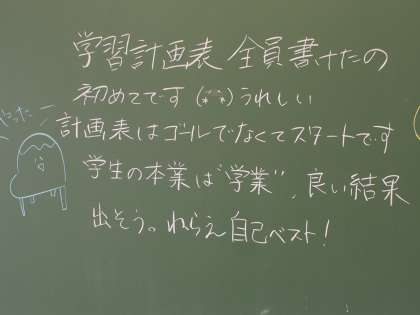 学習計画表 全員書けたの
初めてです(*^*)うれしい
計画表はゴールでなくてスタートです
学生の本業は"学業"、良い結果
出そう。ねらえ自己ベスト!
やったー